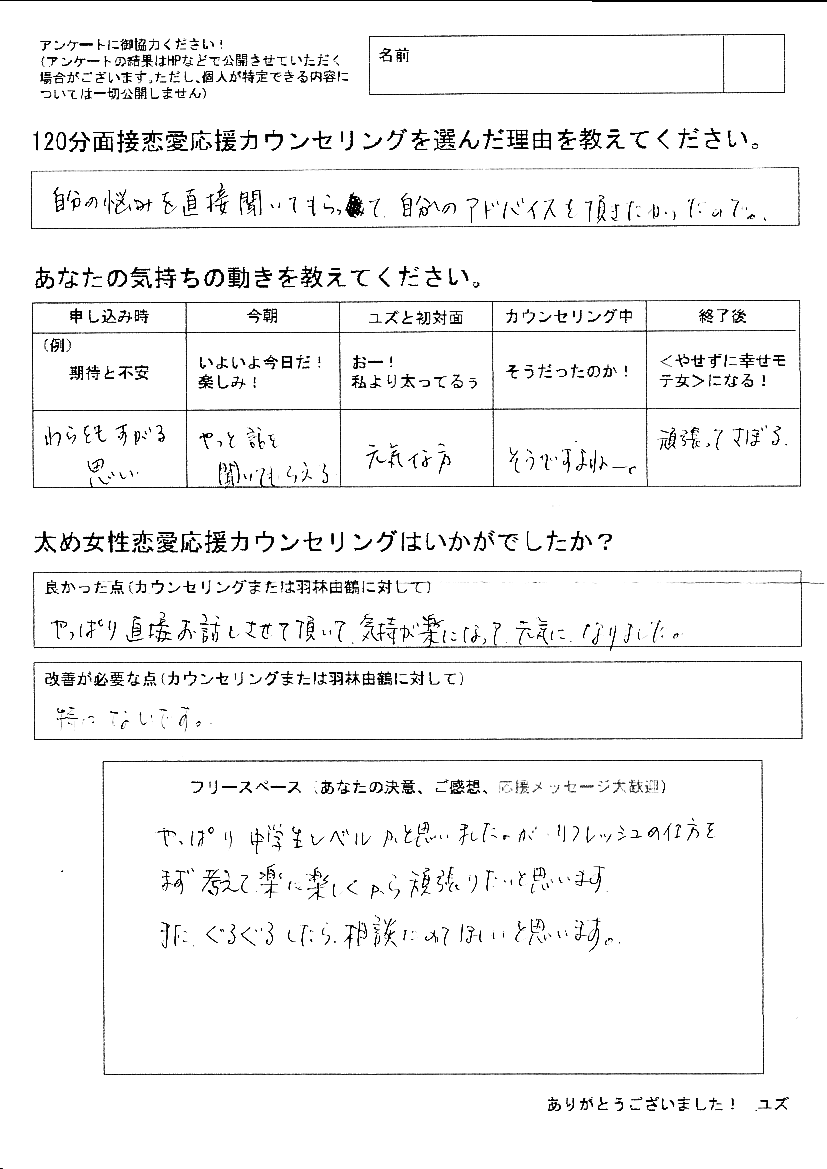 アンケートに御協力ください！
（アンケートの結果はHPなどで公開させていただく
場合がございます。ただし、個人が特定できる内容に
ついては一切公開しません）
名前
120分面接恋愛応援カウンセリングを選んだ理由を教えてください。
自分の悩みを直接聞いてもらって、自分へのアドバイスを頂きたかったので。
あなたの気持ちの動きを教えてください。
申し込み時 今朝 ユズと初対面 カウンセリング中 終了後
（例）
期待と不安
いよいよ今日だ！
楽しみ！
おー！
私より太ってるぅ
そうだったのか！
＜やせずに幸せモ
テ女＞になる！
わらをもすがる
思い
やっと話を
聞いてもらえる
元気な方
そうですよねー。
頑張ってさぼる。
太め女性恋愛応援カウンセリングはいかがでしたか？
良かった点（カウンセリングまたは羽林由鶴に対して）
やっぱり直接お話しさせて頂いて、気持が楽になって、元気になりました。
改善が必要な点（カウンセリングまたは羽林由鶴に対して）
特にないです。
フリースペース（あなたの決意、ご感想、応援メッセージ大歓迎）
やっぱり中学生レベルかと思いましたが、リフレッシュの仕方を
まず考えて、楽に楽しくから頑張りたいと思います。
また、ぐるぐるしたら、相談にのてほしいと思います。
ありがとうございました！ ユズ